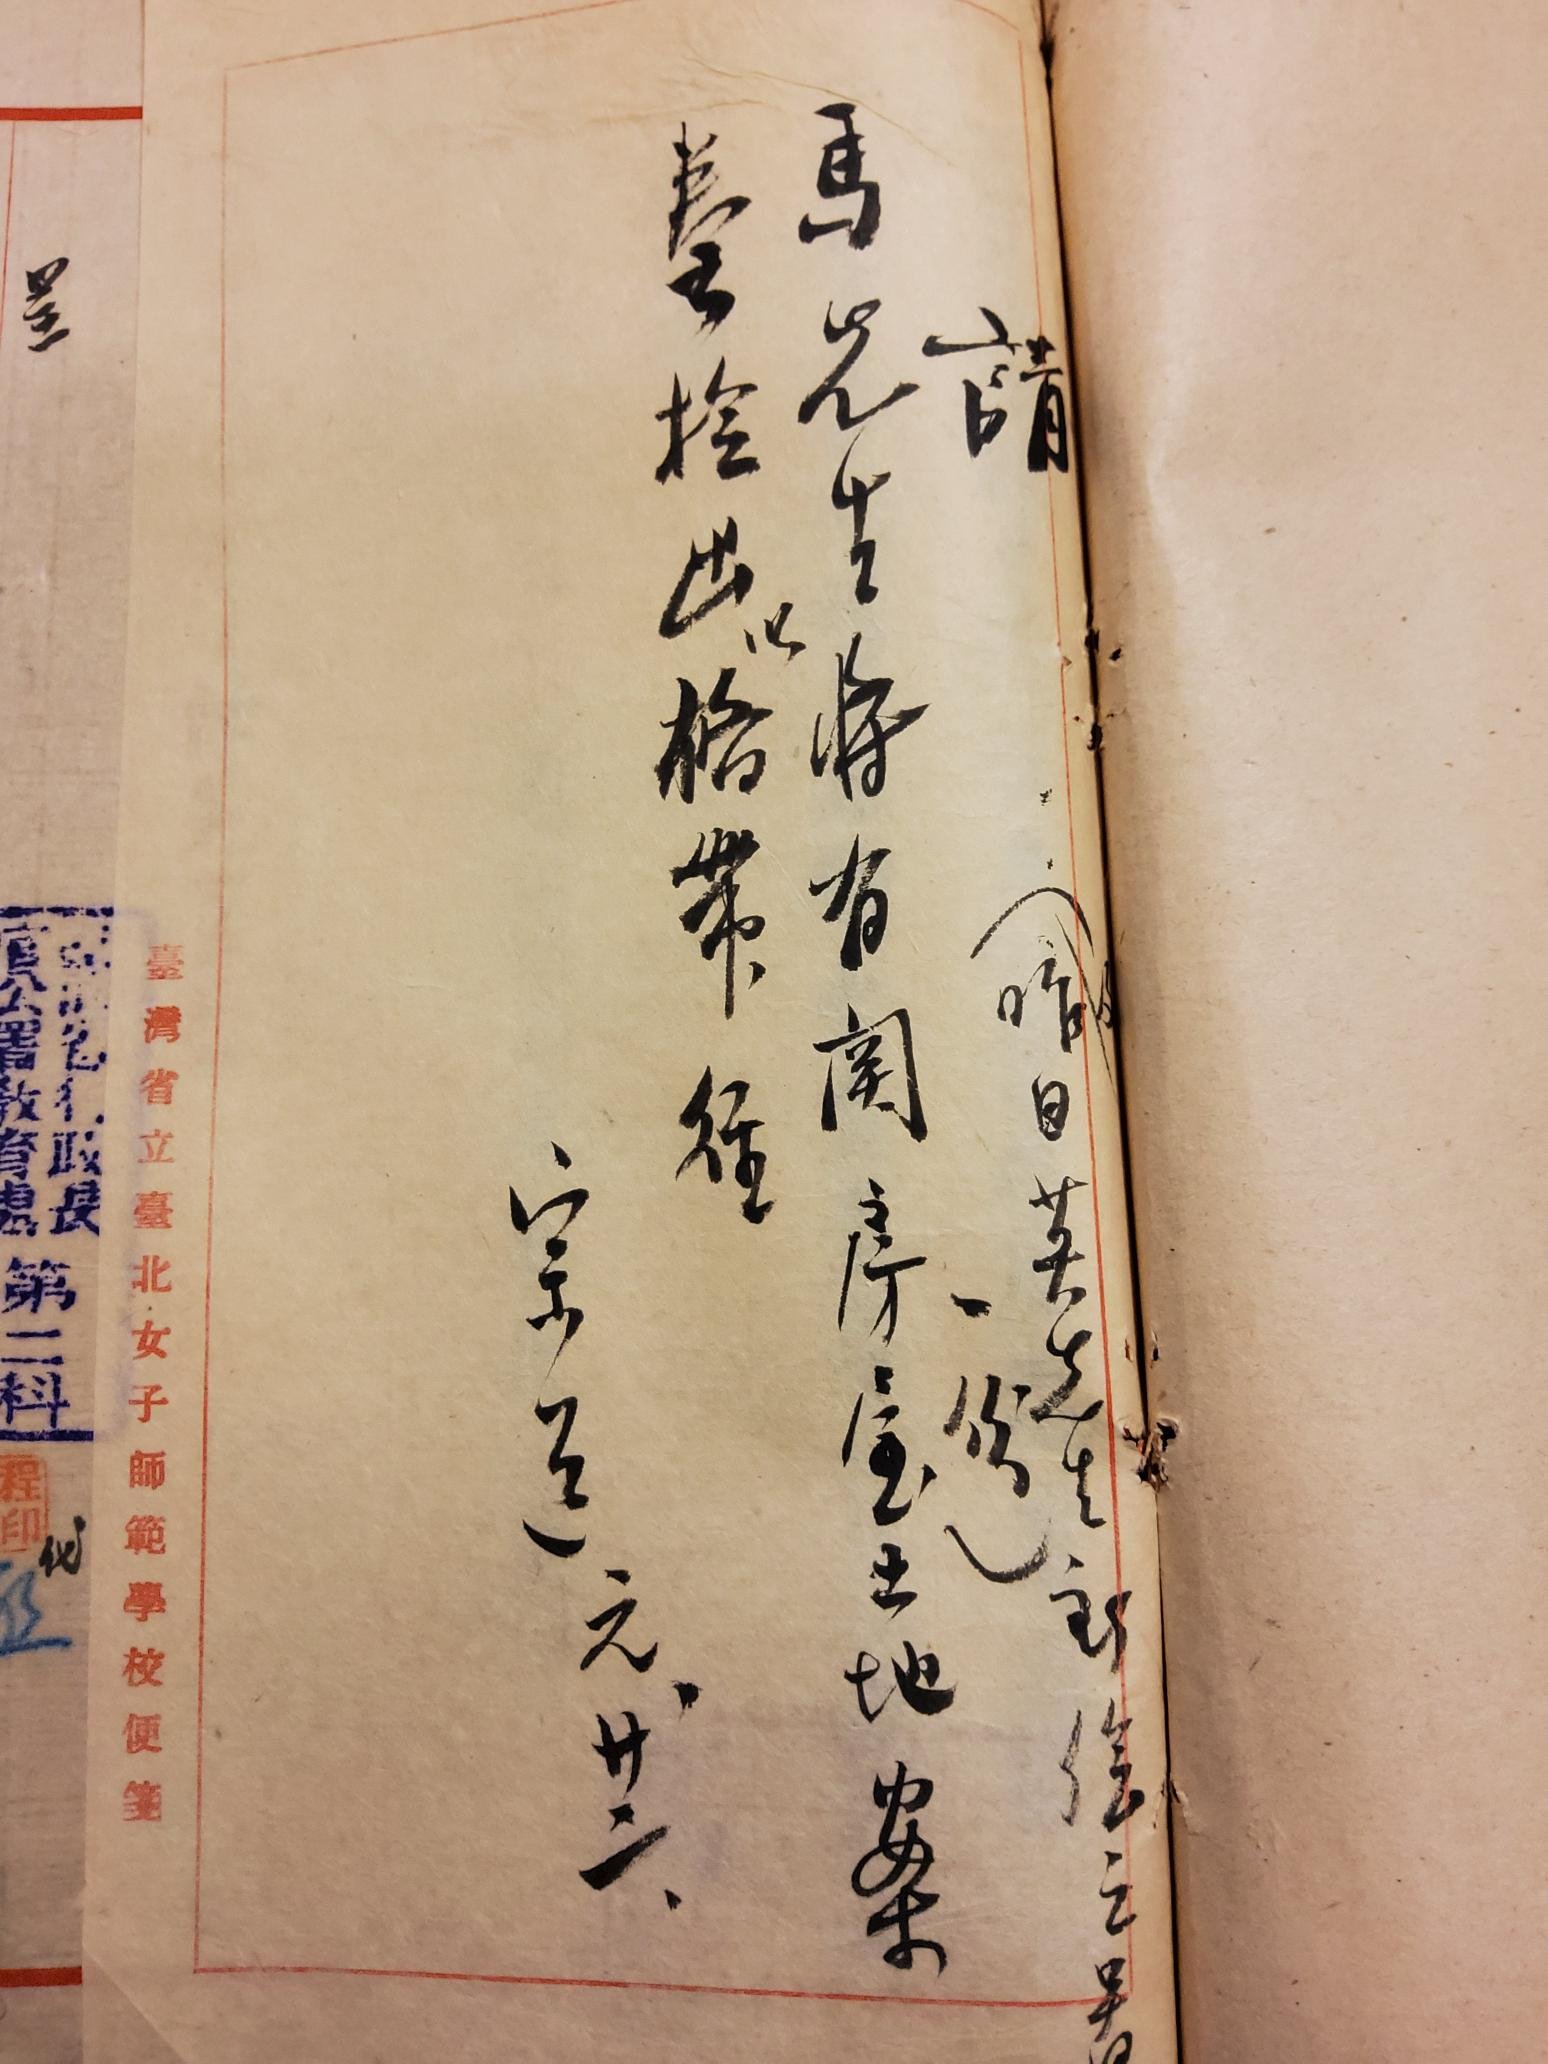 請
(昨日黃先生
一份)
馬先生將有關房屋土地案
卷檢出以格帶往
宗 元、廿二、
臺灣省立臺北女子師範學校便箋
呈
行政長
官公署教育處 第二科
程印
代